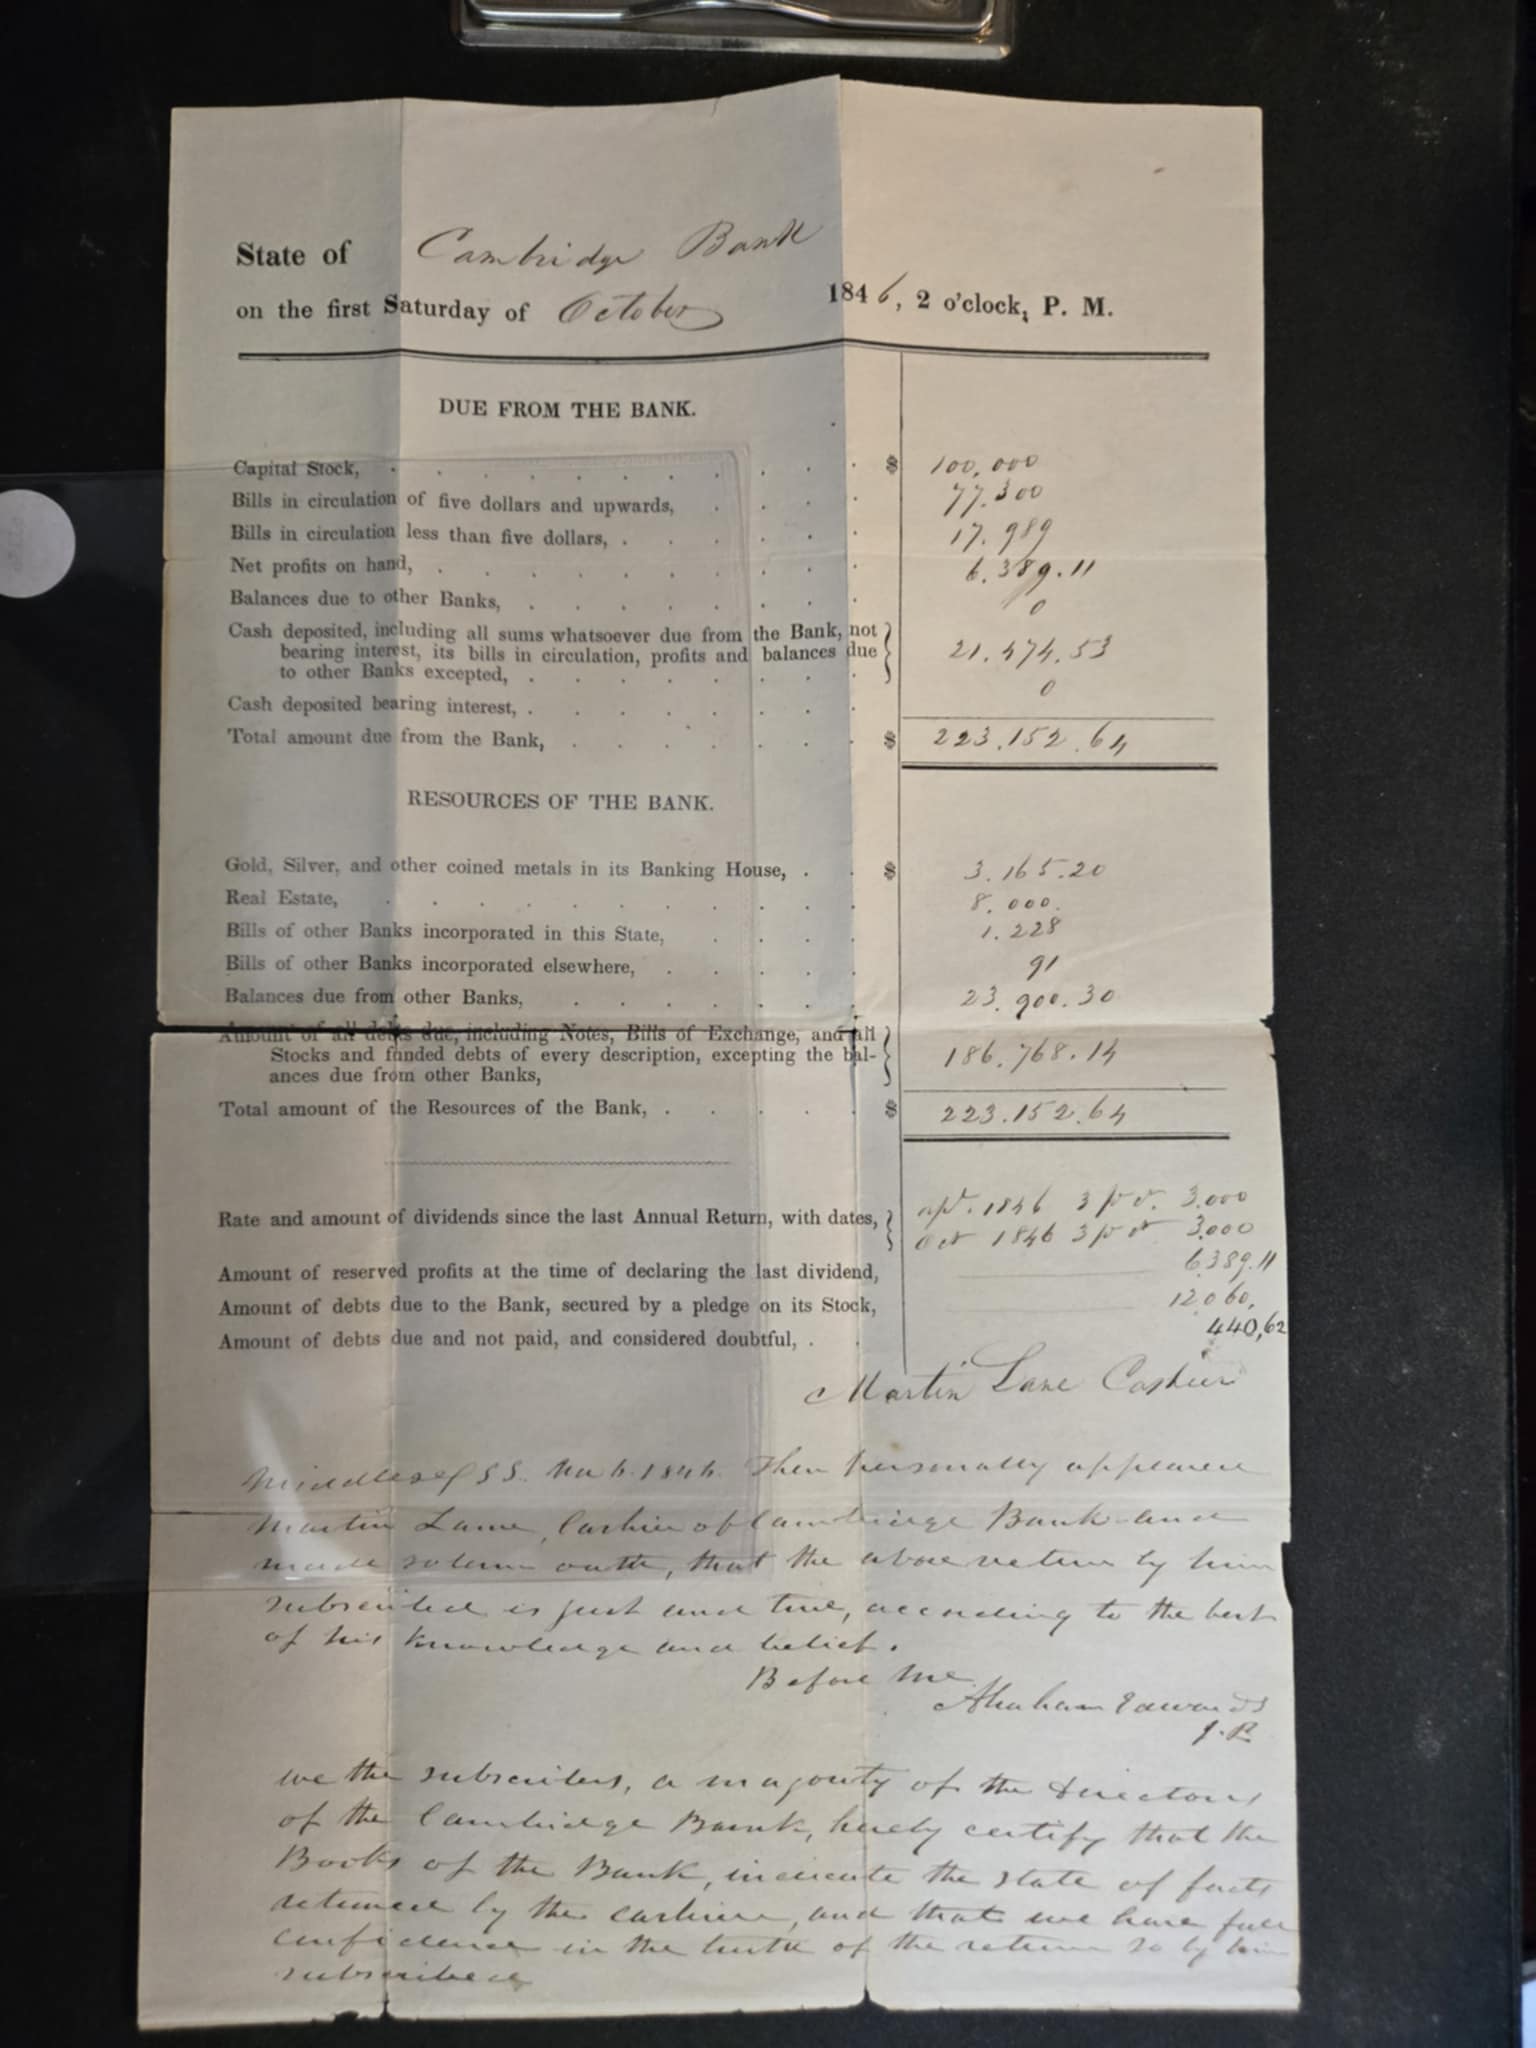 State of Cambridge Bank
on the first Saturday of October 1846, 2 o'clock, P. M.
DUE FROM THE BANK.
Capital Stock, $ 100,000
Bills in circulation of five dollars and upwards, 77.300
Bills in circulation less than five dollars, 17.989
Net profits on hand, 6.389.11
Balances due to other Banks, 0
Cash deposited, including all sums whatsoever due from the Bank, not
bearing interest, its bills in circulation, profits and balances due
to other Banks excepted, 21.474.53
Cash deposited bearing interest, 0
Total amount due from the Bank, $ 223.152.64
RESOURCES OF THE BANK.
Gold, Silver, and other coined metals in its Banking House, $ 3.165.20
Real Estate, 8.000.
Bills of other Banks incorporated in this State, 1.228
Bills of other Banks incorporated elsewhere, 91
Balances due from other Banks, 23.900.30
Amount of all debts due, including Notes, Bills of Exchange, and all
Stocks and funded debts of every description, excepting the bal-
ances due from other Banks, 186.768.14
Total amount of the Resources of the Bank, $ 223.152.64
apl. 1846 3 pr ct. 3.000
Rate and amount of dividends since the last Annual Return, with dates,
Oct 1846 3 pr ct 3.000
Amount of reserved profits at the time of declaring the last dividend, 6.389.11
Amount of debts due to the Bank, secured by a pledge on its Stock, 12.060.
Amount of debts due and not paid, and considered doubtful, 440,62
Martin Lane Cashier
Middlesex SS. 1846. Then personally appeared
Martin Lane, Cashier of Cambridge Bank and
made solemn oath, that the above return by him
subscribed is just and true, according to the best
of his knowledge and belief.
Before Me
Abraham Edwards
J. P.
we the subscribers, a majority of the Directors
of the Cambridge Bank, hereby certify that the
Books of the Bank, indicate the state of facts
returned by the cashier, and that we have full
confidence in the truth of the return so by him
subscribed